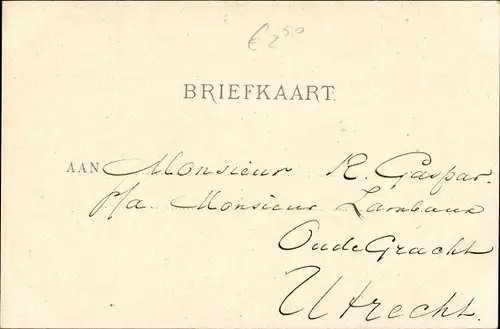 € 2,50
BRIEFKAART.
AAN Monsieur R. Gaspar.
p/a. Monsieur Lambaux
Oude Gracht
Utrecht.